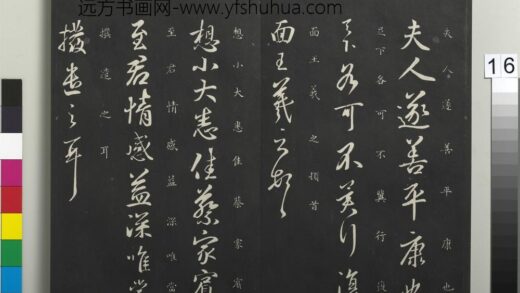 远方书画网-www.yfshuhua.com
16
夫人遂善平康也
夫人遂善平康也
足下各可不冀行復
足下各可不冀行復
面王羲之頓首
面王羲之頓首
想小大悉佳蔡家賓
想小大悉佳蔡家賓
至君情感益深唯當
至君情感益深唯當
撥遣之耳
撥遣之耳